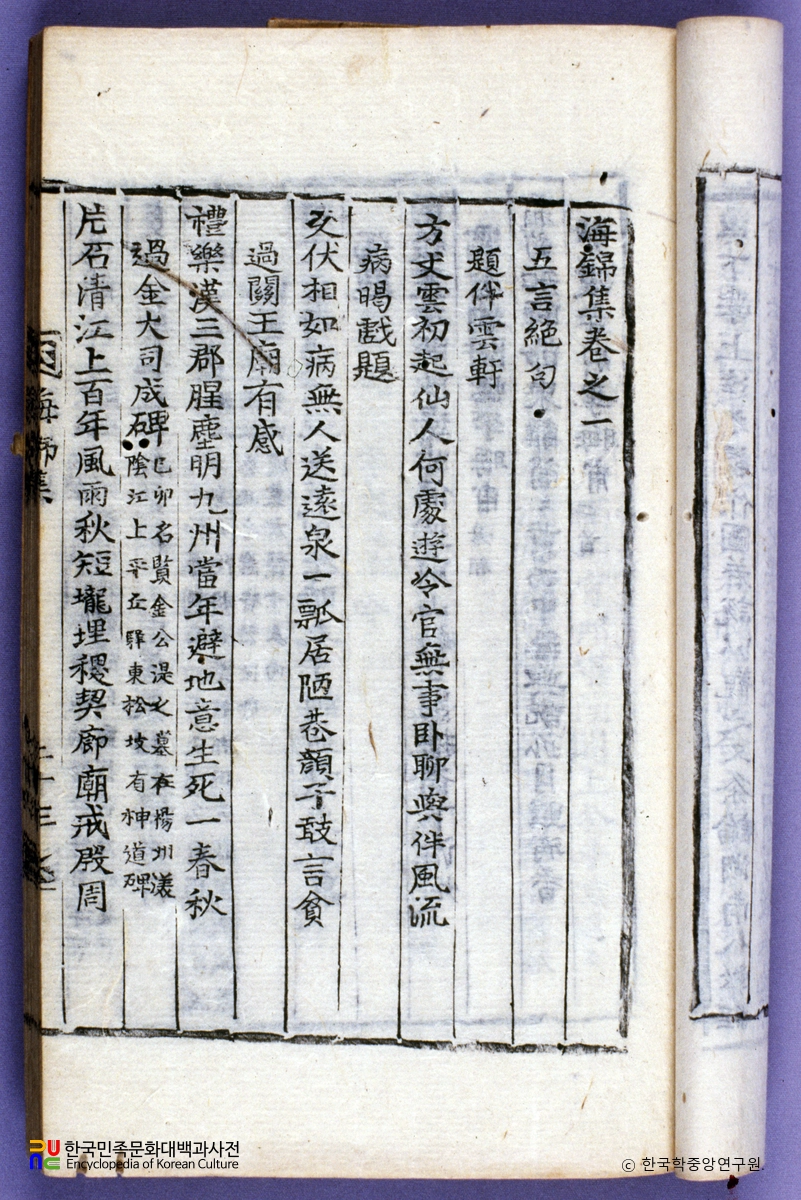 海錦集卷之一
五言絶句
題伴雲軒
方丈雲初起仙人何處遊冷官無事卧聊與伴風流
病暍戲題
文伏相如病無人送遠泉一瓢居陋巷顔子敢言貧
過關王廟有感
禮樂漢三郡腥塵明九州當年避地意生死一春秋
過金大司成碑
己卯名賢金公湜之墓在楊州漾
陰江上平丘驛東松坡有神道碑
片石清江上百年風雨秋短壠埋稷契廊廟戒殷周
海錦集
한국민족문화대백과사전
Encyclopedia of Korean Culture
© 한국학중앙연구원